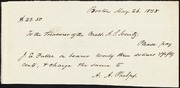 Boston Aug. 26. 1838
$ 22.50
To the Treasurer of the Mass. A. S. Society,
Please pay
J. E. Fuller or bearer twenty two dollars & fifty
cents, & charge the same to
A. A. Phelps.